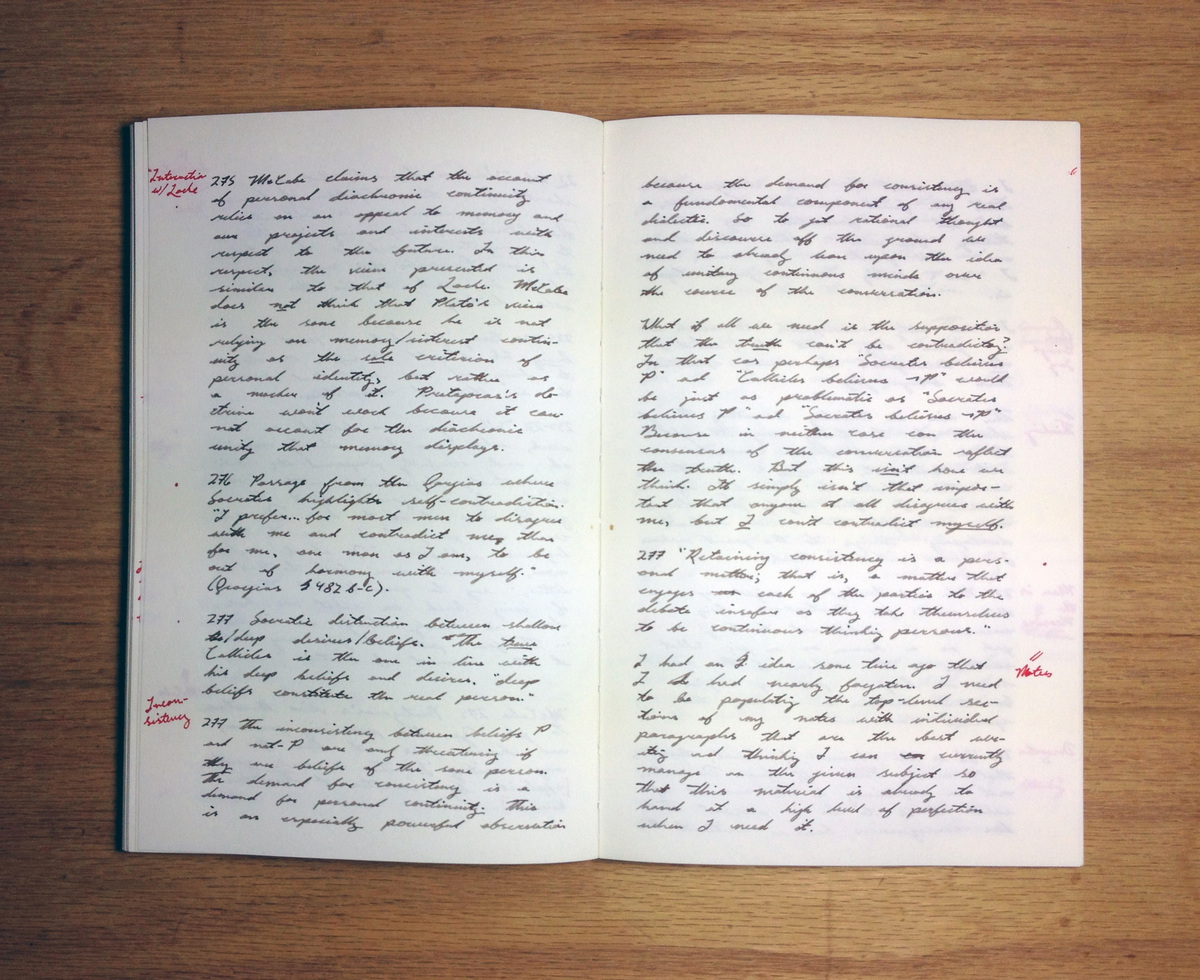 "Interaction
w/ Locke
275 McCabe claims that the account
of personal diachronic continuity
relies on an appeal to memory and
our projects and interests with
respect to the future. In this
respect, the view presented is
similar to that of Locke. McCabe
does not think that Plato's view
is the same because he is not
relying on memory/interest contin-
uity as the sole criterion of
personal identity, but rather as
a marker of it. Protagoras's do-
ctrine won't work because it can-
not account for the diachronic
unity that memory displays.
276 Passage from the Gorgias where
Socrates highlights self-contradiction.
"I prefer... for most men to disagree
with me and contradict me, than
for me, one man as I am, to be
out of harmony with myself."
(Gorgias § 482 b-c).
277 Socratic distinction between shallow
/deep desires/beliefs. "The true
Callicles is the one in line with
his deep beliefs and desires. "deep
beliefs constitute the real person."
Incon-
sistency
277 The inconsistency between beliefs P
and not-P are only threatening if
they are beliefs of the same person.
The demand for consistency is a
demand for personal continuity. This
is an especially powerful observation
because the demand for consistency is
a fundamental component of any real
dialectic. So to get rational thought
and discourse off the ground we
need to already lean upon the idea
of unitary continuous minds over
the course of the conversation.
What if all we need is the supposition
that the truth can't be contradictory?
In that cas perhaps "Socrates believes
P" ad "Callicles believes ¬P" would
be just as problematic as "Socrates
believes P" ad "Socrates believes ¬P"
Because in neither case can the
consensus of the conversation reflect
the truth. But this isn't how we
think. It simply isn't that impor-
tant that anyone at all disagrees with
me, but I can't contradict myself.
277 "Retaining consistency is a pers-
onal matter; that is, a matter that
engages each of the parties to the
debate insofar as they take themselves
to be continuous thinking persons."
"
Notes
I had an idea some time ago that
I had nearly forgotten. I need
to be populating the top-level sec-
tions of my notes with individual
paragraphs that are the best wri-
ting and thinking I can currently
manage on the given subject so
that this material is already to
hand at a high level of perfection
when I need it.